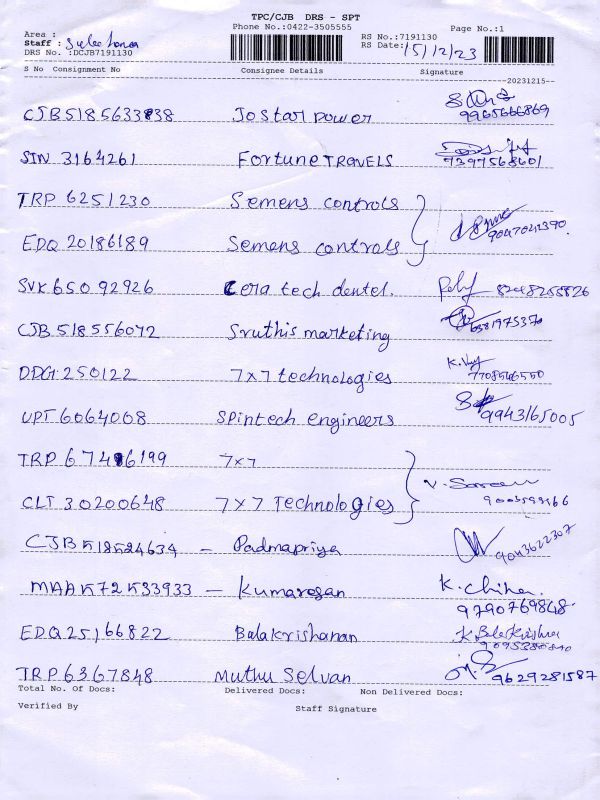 TPC/CJB DRS - SPT
Phone No.:0422-3505555
Page No.:1
Area :
Staff :
RS No.:7191130
DRS No. :DCJB7191130
RS Date: 15/12/23
S No Consignment No Consignee Details Signature
20231215--
CJB5185633838 Jostar power 9965666869
SIN 3164261 Fortune TRAVELS 7397568601
TRP 6251230 Semens controls
EDQ 20186189 Semens controls
SVK650 92926 Cera tech dentel. 8248255826
CJB 518556072 Sruthis marketing
DDG1250122 7x7 technologies 7708546550
UPT 6064008 Spintech engineers 9943165005
TRP 67486199 7x7
CLT 30200648 7x7 Technologies
CJB 518524634 - Padmapriya 9043622307
MAA 572533933 - Kumaresan K. Chiha. 9790769848
EDQ 25166822 Balakrishanan K Balakrishna
TRP 6367848 Muthu Selvan 9629281587
Total No. Of Docs: Delivered Docs: Non Delivered Docs:
Verified By Staff Signature